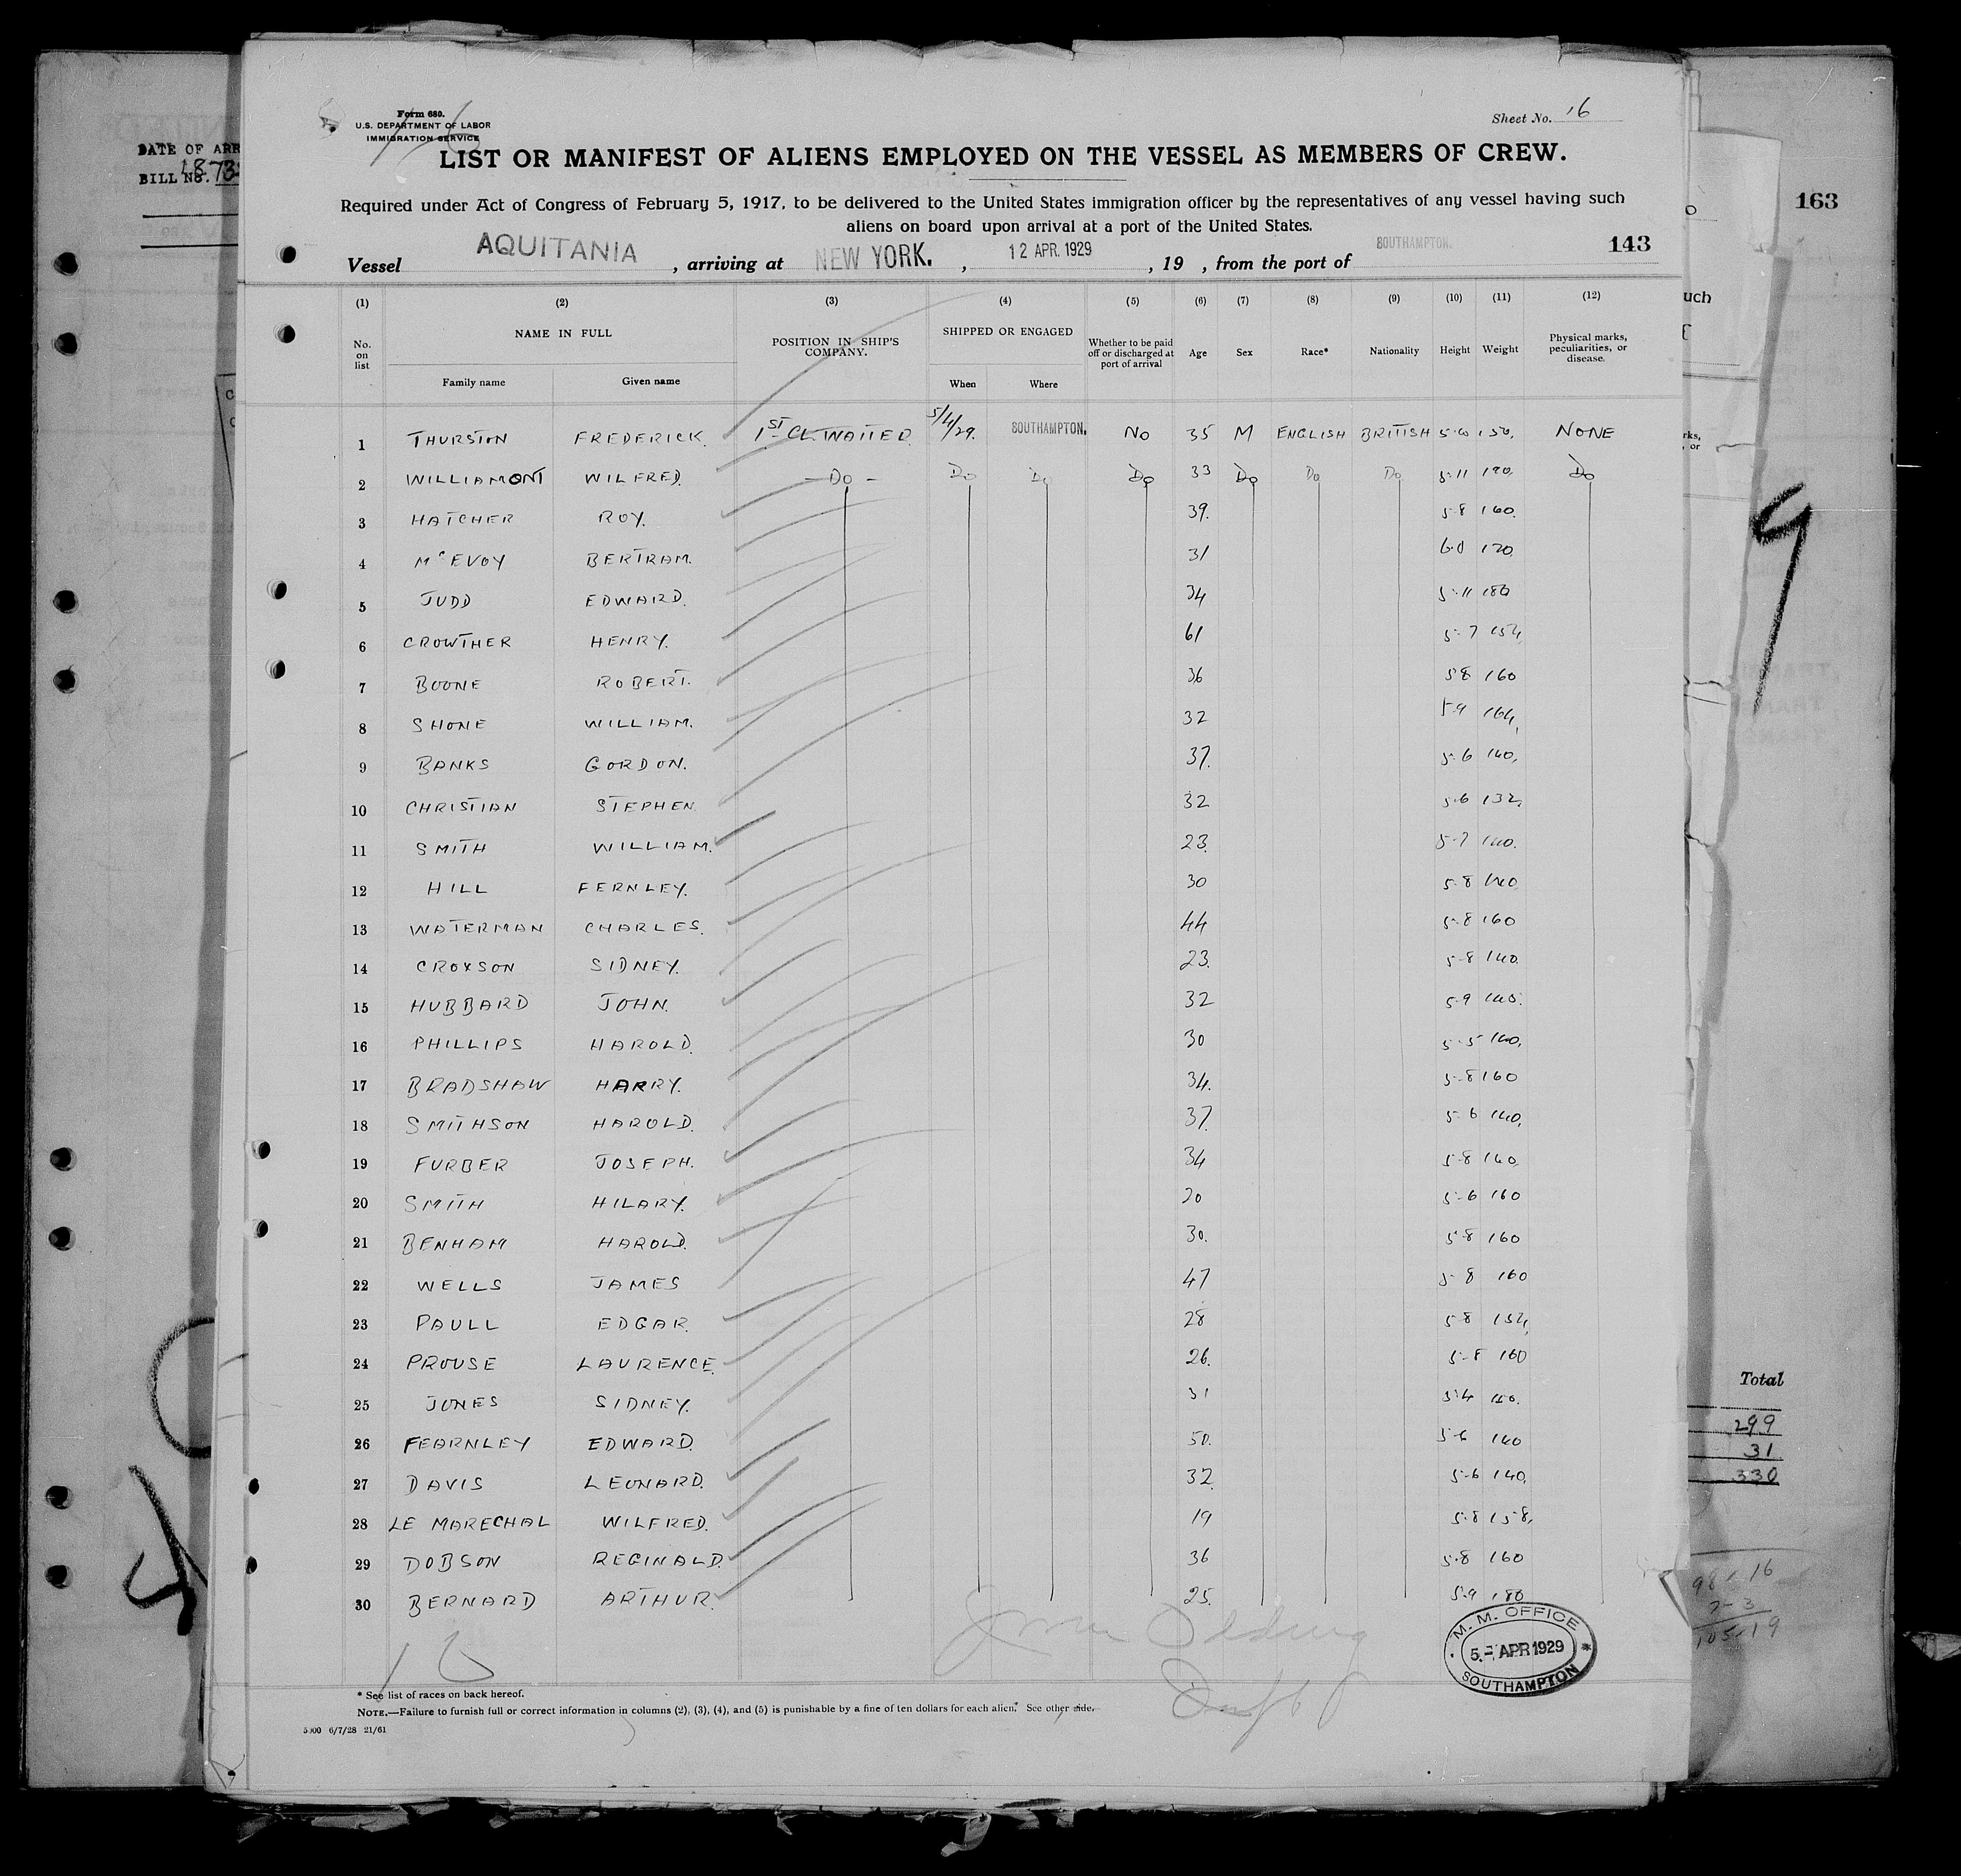 Form 680.
U.S. DEPARTMENT OF LABOR
IMMIGRATION SERVICE
Sheet No. 16
LIST OR MANIFEST OF ALIENS EMPLOYED ON THE VESSEL AS MEMBERS OF CREW.
Required under Act of Congress of February 5, 1917, to be delivered to the United States immigration officer by the representatives of any vessel having such
aliens on board upon arrival at a port of the United States.
143
Vessel AQUITANIA, arriving at NEW YORK., 12 APR. 1929, 19 , from the port of SOUTHAMPTON.
(1) (2) (3) (4) (5) (6) (7) (8) (9) (10) (11) (12)
No. on list NAME IN FULL Family name Given name POSITION IN SHIP'S COMPANY. SHIPPED OR ENGAGED When Where Whether to be paid off or discharged at port of arrival Age Sex Race* Nationality Height Weight Physical marks, peculiarities, or disease.
1 THURSTON FREDERICK. 1ST CL. WAITER 5/4/29. SOUTHAMPTON. NO 35 M ENGLISH BRITISH 150. NONE
2 WILLIAMONT WILFRED. - DO - DO DO DO 33 DO DO DO 5-11 DO
3 HATCHER ROY. 39. 5-8 160.
4 McEVOY BERTRAM. 31 6-0
5 JUDD EDWARD. 34 5-11 180
6 CROWTHER HENRY. 61 5-7 154
7 BOONE ROBERT. 36 5-8 160
8 SHONE WILLIAM. 32 5-9 164
9 BANKS GORDON. 37. 5-6 140.
10 CHRISTIAN STEPHEN. 32 5-6 132.
11 SMITH WILLIAM. 23. 5-7 140.
12 HILL FERNLEY. 30 5-8 140
13 WATERMAN CHARLES. 44 5-8 160
14 CROXSON SIDNEY. 23. 5-8 140.
15 HUBBARD JOHN. 32 5-9
16 PHILLIPS HAROLD. 30 5-5 140.
17 BRADSHAW HARRY. 34. 5-8 160
18 SMITHSON HAROLD. 37. 5-6 140.
19 FURBER JOSEPH. 34 5-8 140.
20 SMITH HILARY. 5-6 160
21 BENHAM HAROLD. 30. 5-8 160
22 WELLS JAMES 47 5-8 160
23 PAULL EDGAR. 28 5-8 154
24 PROUSE LAURENCE. 26. 5-8 160
25 JONES SIDNEY. 31 5-4
26 FEARNLEY EDWARD. 50. 5-6 140
27 DAVIS LEONARD. 32. 5-6 140.
28 LE MARECHAL WILFRED. 19 5-8 158.
29 DOBSON REGINALD. 36 5-8 160
30 BERNARD ARTHUR. 25. 5-9 180
M. M. OFFICE
5 - APR 1929
SOUTHAMPTON
* See list of races on back hereof.
NOTE.—Failure to furnish full or correct information in columns (2), (3), (4), and (5) is punishable by a fine of ten dollars for each alien. See other side.
5000 6/7/28 21/61
DATE OF ARR
BILL NO. 1873
163
uch
Total
299
31
330